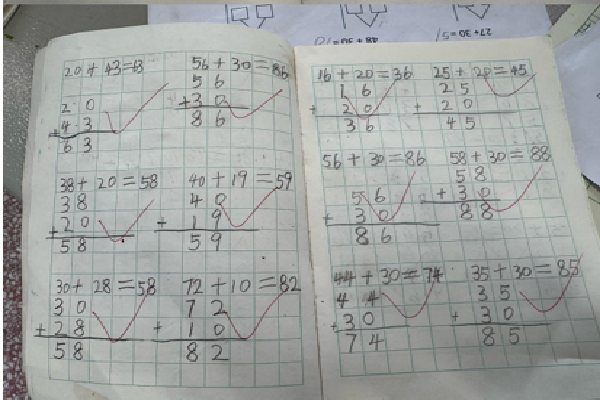 48+30=70
27+30=57
20+43=63
20
+43
63
56+30=86
56
+30
86
38+20=58
38
+20
58
40+19=59
40
+19
59
30+28=58
30
+28
58
72+10=82
72
+10
82
16+20=36
16
+20
36
25+20=45
25
+20
45
56+30=86
56
+30
86
58+30=88
58
+30
88
44+30=74
44
+30
74
35+30=85
35
+30
85